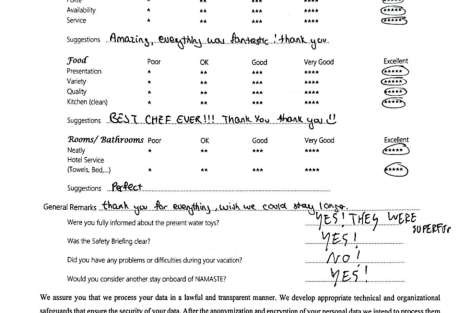 Availability * ** *** **** *****
Service * ** *** **** *****
Suggestions Amazing, everything was fantastic! thank you.
Food Poor OK Good Very Good Excellent
Presentation * ** *** **** *****
Variety * ** *** **** *****
Quality * ** *** **** *****
Kitchen (clean) * ** *** **** *****
Suggestions BEST CHEF EVER!!! Thank You thank you!!
Rooms/ Bathrooms Poor OK Good Very Good Excellent
Neatly * ** *** **** *****
Hotel Service
(Towels, Bed,...) * ** *** **** *****
Suggestions Perfect
General Remarks thank you for everything, wish we could stay longer.
Were you fully informed about the present water toys? YES! THEY WERE
Was the Safety Briefing clear? YES!
Did you have any problems or difficulties during your vacation? NO!
Would you consider another stay onboard of NAMASTE? YES!
We assure you that we process your data in a lawful and transparent manner. We develop appropriate technical and organizational
safeguards that ensure the security of your data. After the anonymization and encryption of your personal data we intend to process them